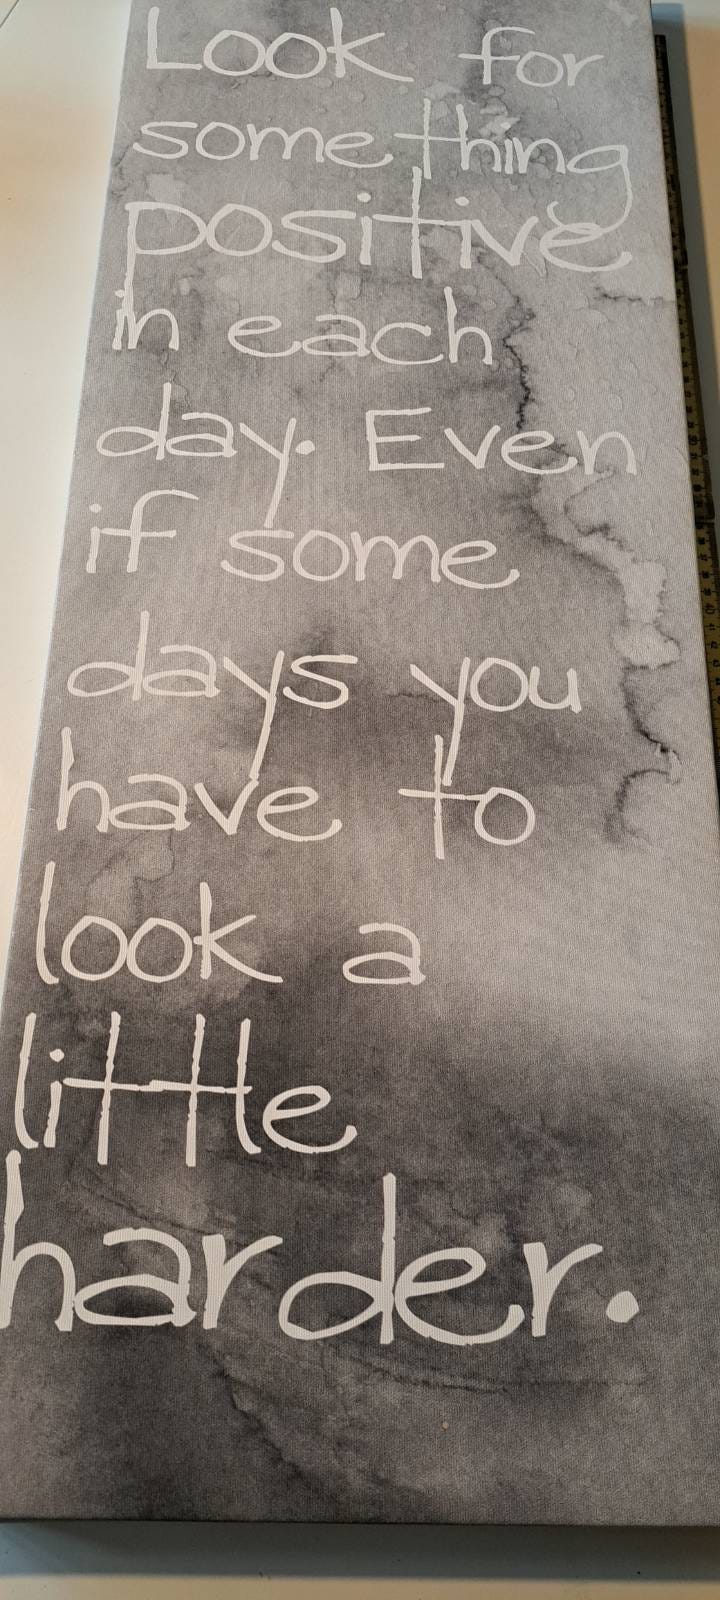 Look for
something
positive
in each
day. Even
if some
days you
have to
look a
little
harder.